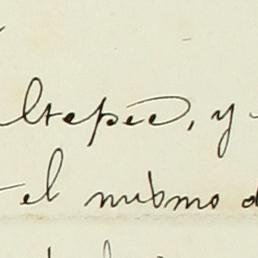 ltepec, y
el mismo d